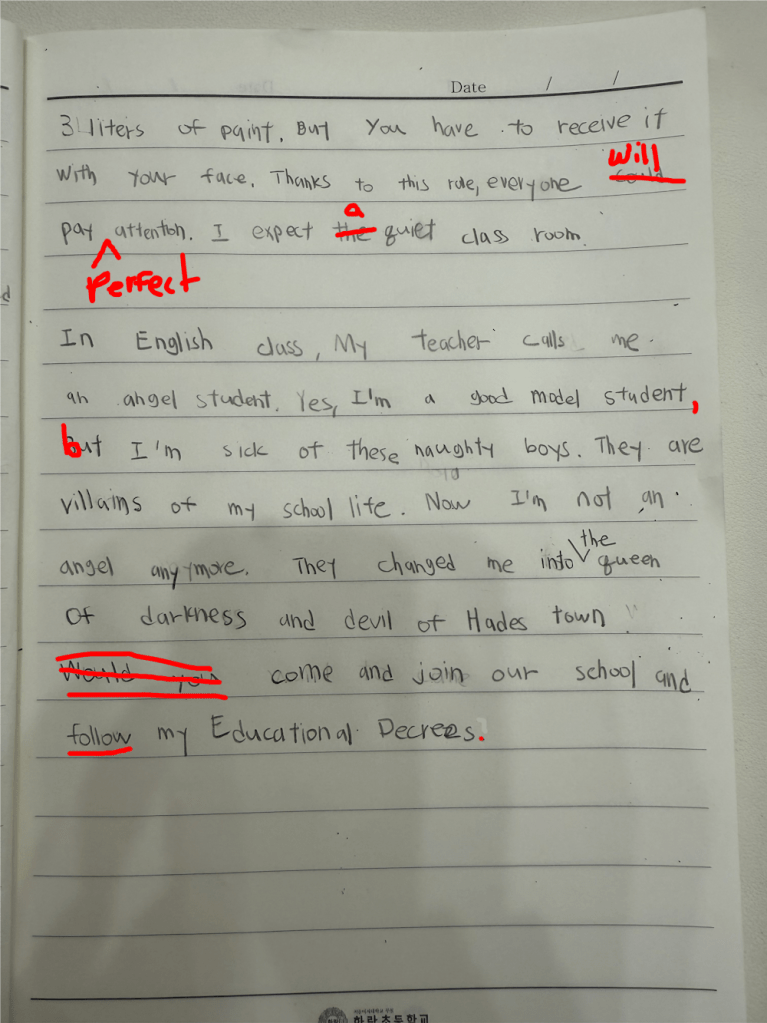 Date / /
3 liters of paint. But you have to receive it
will
with your face. Thanks to this rule, everyone could
a
pay attention. I expect the quiet class room.
Perfect
In English class, My teacher calls me
an angel student. Yes, I'm a good model student,
but I'm sick of these naughty boys. They are
villains of my school life. Now I'm not an
angel anymore. They changed me into the queen
of darkness and devil of Hades town
Would you come and join our school and
follow my Educational Decrees.
하랑초등학교